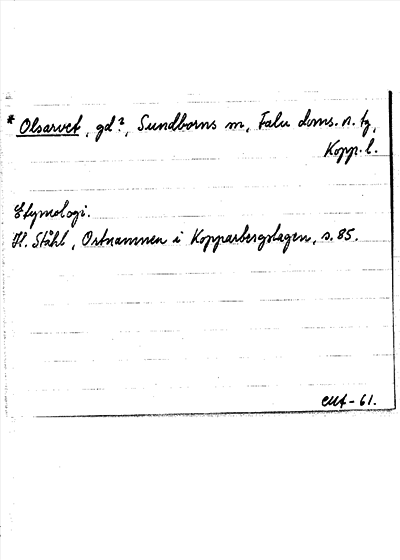 * Olsarvet, gd?, Sundborns sn, Falu doms. n. tg,
Kopp. l.
Etymologi.
H. Ståhl, Ortnamnen i Kopparbergslagen, s. 85.
-61.